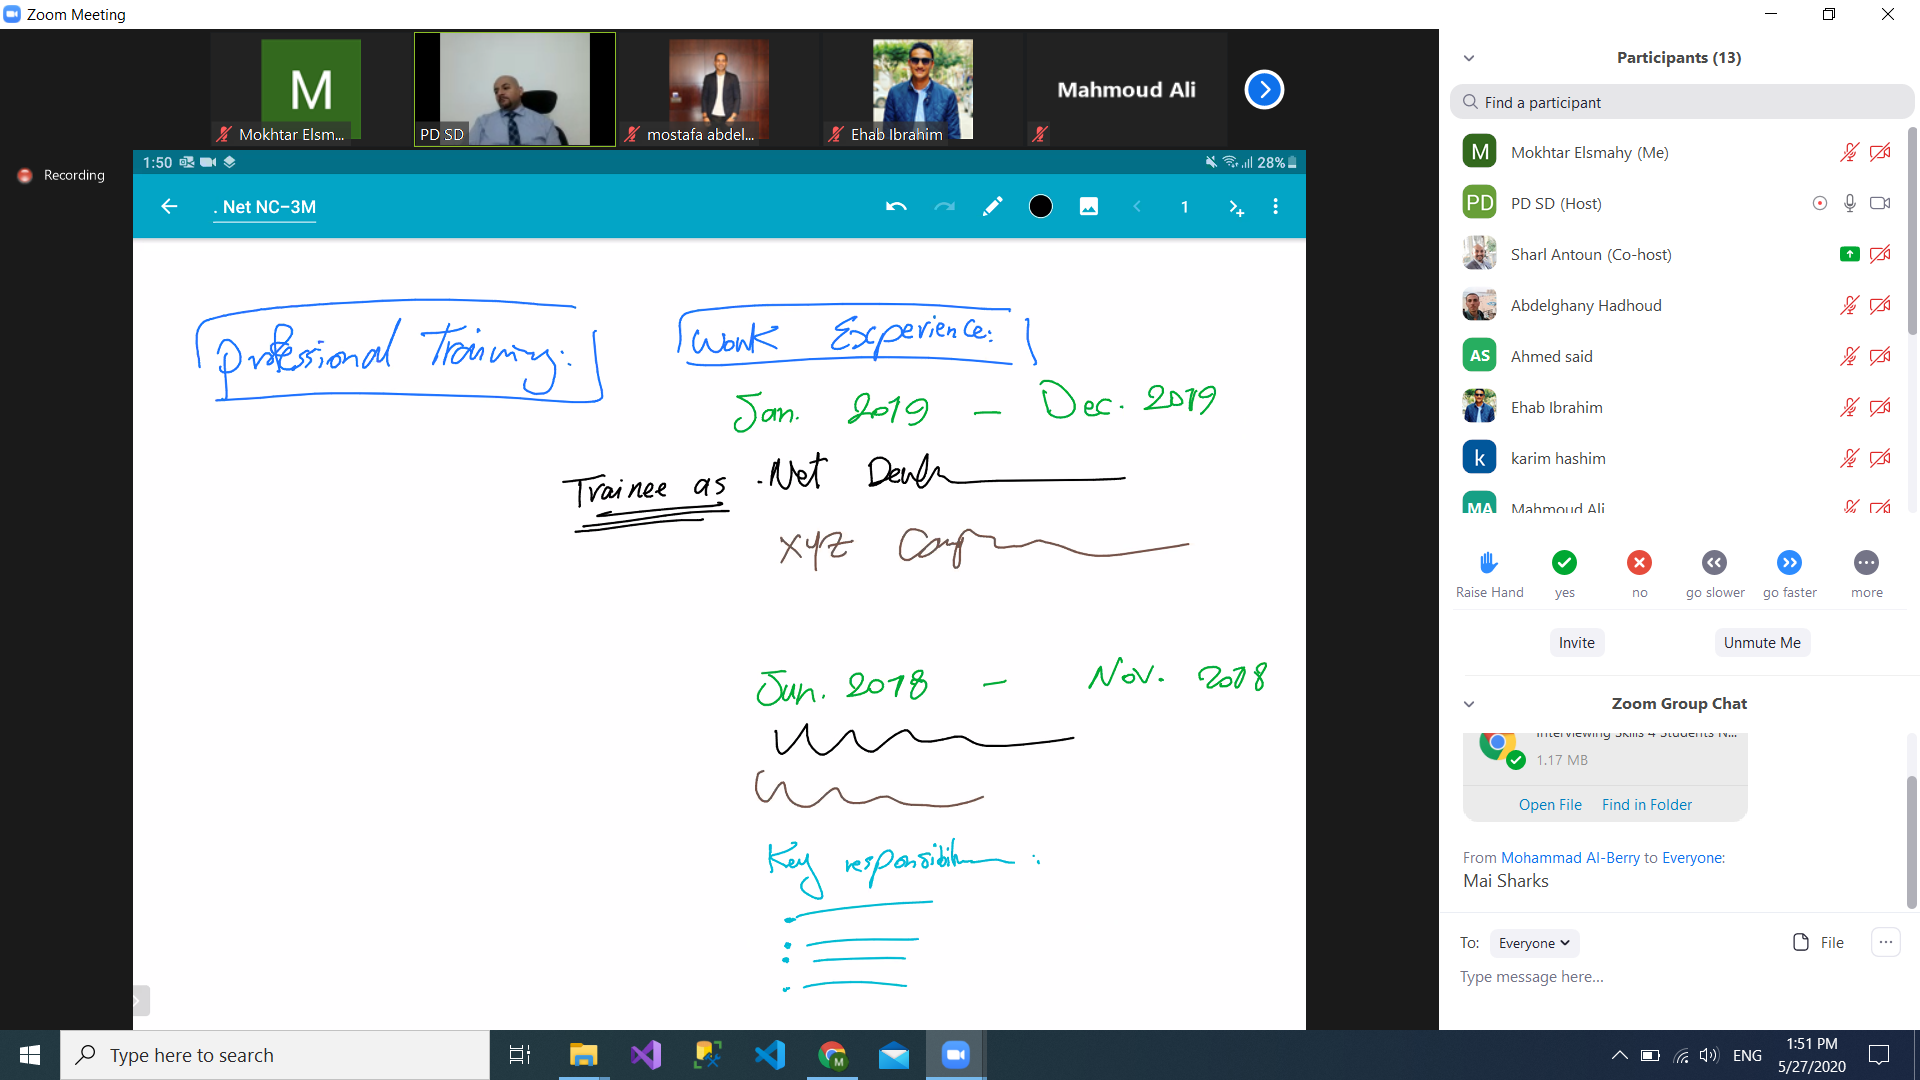 Zoom Meeting
M
Mokhtar Elsm...
PD SD
mostafa abdel...
Ehab Ibrahim
Mahmoud Ali
Recording
1:50
28%
. Net NC-3M
1
Professional Training:
Work Experience:
Jan. 2019 - Dec. 2019
Trainee as .Net
XYZ
Jun. 2018 - Nov. 2018
Key
Participants (13)
Find a participant
M Mokhtar Elsmahy (Me)
PD PD SD (Host)
Sharl Antoun (Co-host)
Abdelghany Hadhoud
AS Ahmed said
Ehab Ibrahim
k karim hashim
MA Mahmoud Ali
Raise Hand yes no go slower go faster more
Invite Unmute Me
Zoom Group Chat
Interviewing Skills 4 Students N...
1.17 MB
Open File Find in Folder
From Mohammad Al-Berry to Everyone:
Mai Sharks
To: Everyone File
Type message here...
Type here to search
M
ENG
1:51 PM
5/27/2020